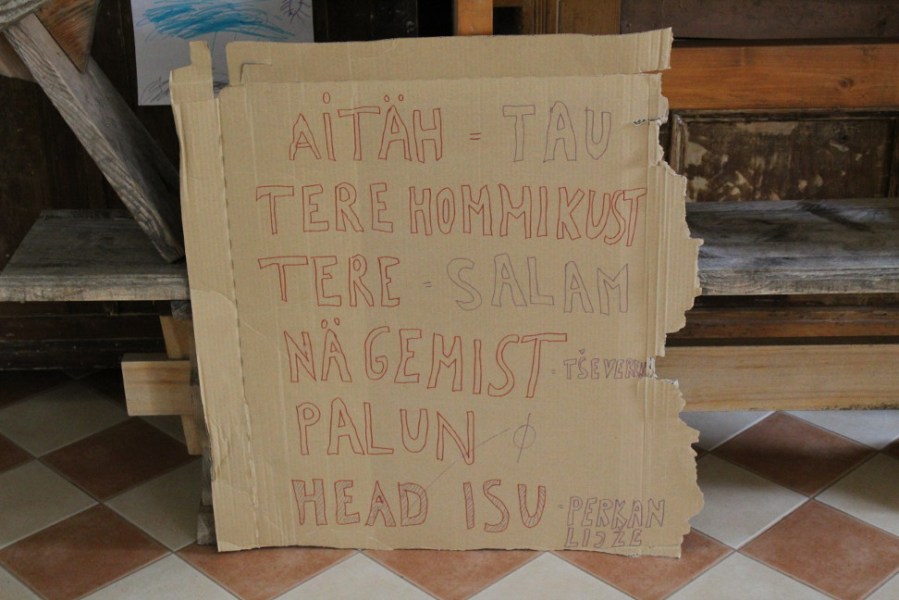 AİTÄH = TAU
TERE HOMMIKUST
TERE = SALAM
NÄGEMIST - TŠEVERİM
PALUN ∅
HEAD ISU - PERKAN
LIJZE